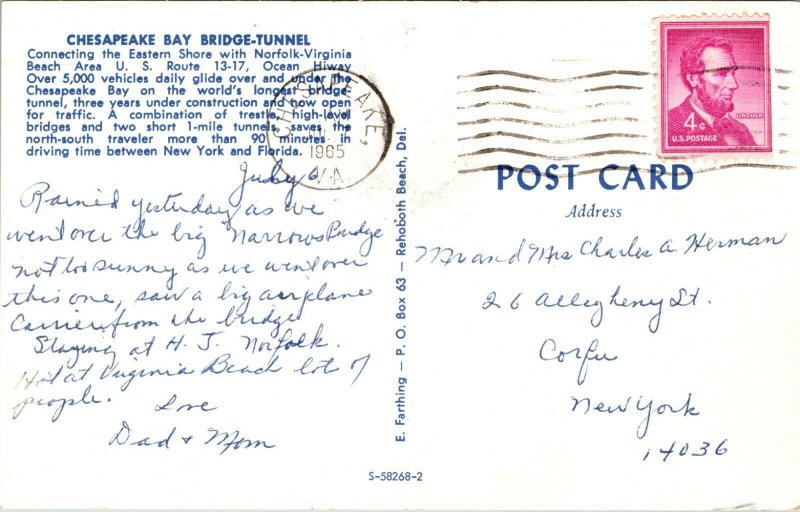 CHESAPEAKE BAY BRIDGE-TUNNEL
Connecting the Eastern Shore with Norfolk-Virginia
Beach Area U. S. Route 13-17, Ocean Hiway
Over 5,000 vehicles daily glide over and under the
Chesapeake Bay on the world's longest bridge-
tunnel, three years under construction and now open
for traffic. A combination of trestle, high-level
bridges and two short 1-mile tunnels, saves the
north-south traveler more than 90 minutes in
driving time between New York and Florida.
July
Rained yesterday as we
went over the big Narrows Bridge
not too sunny as we went over
this one, saw a big airplane
Carrier from the bridge
Staying at H. J. Norfolk.
Hot at Virginia Beach lot of
people.
Love
Dad + Mom
CHESAPEAKE,
1965
VA
E. Farthing — P. O. Box 63 — Rehoboth Beach, Del.
S-58268-2
4¢
LINCOLN
U.S. POSTAGE
POST CARD
Address
Mr and Mrs Charles A Herman
26 Allegheny St.
Corfu
New York
14036